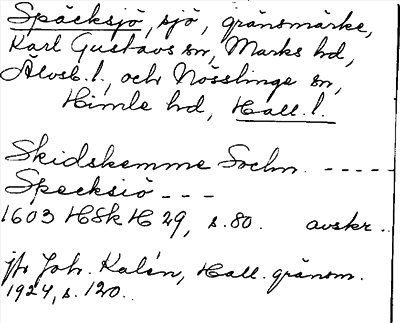 Späcksjö, sjö, gränsmärke,
Karl Gustavs sn, Marks hd,
Älvsb. l., och Nösslinge sn,
Himle hd, Hall. l.
Skidskemme Sochn. -----
Specksiö ---
1603 HSkH 29, s. 80. avskr..
jfr Joh. Kalén, Hall. gränsm.
1924, s. 120.